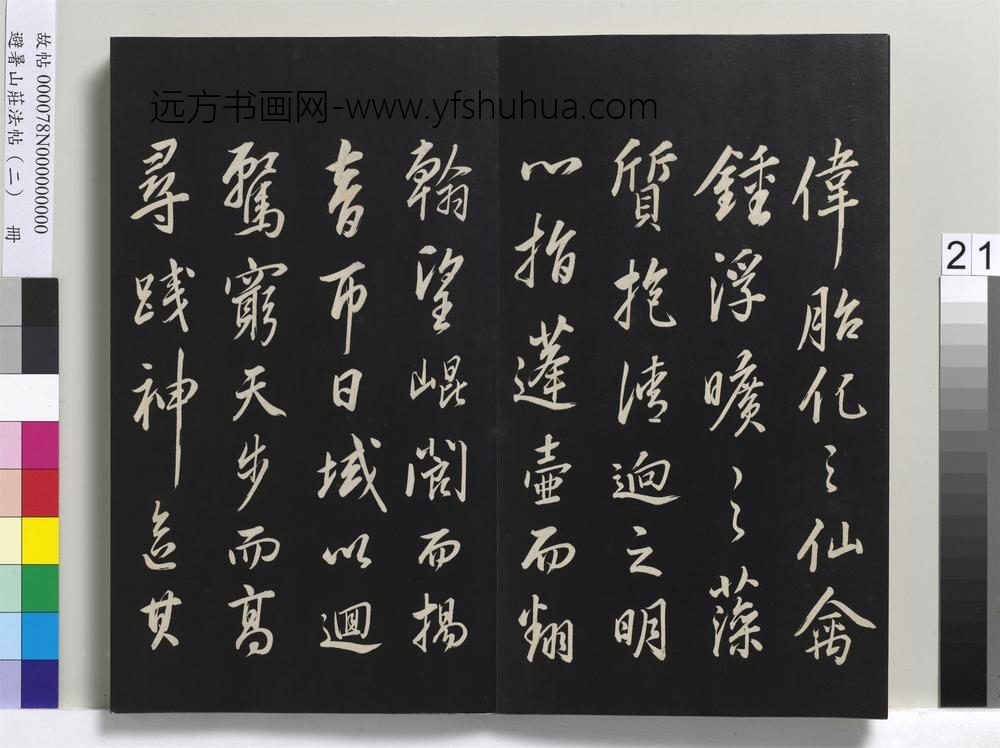 偉胎化之仙禽
鍾浮曠之藻
質抱清迥之明
心指蓬壺而翻
翰望崐閬而揚
音帀日域以迴
鶩窮天步而高
尋踐神區其
远方书画网-www.yfshuhua.com
故帖 000078N000000000
避暑山莊法帖（二） 冊
21